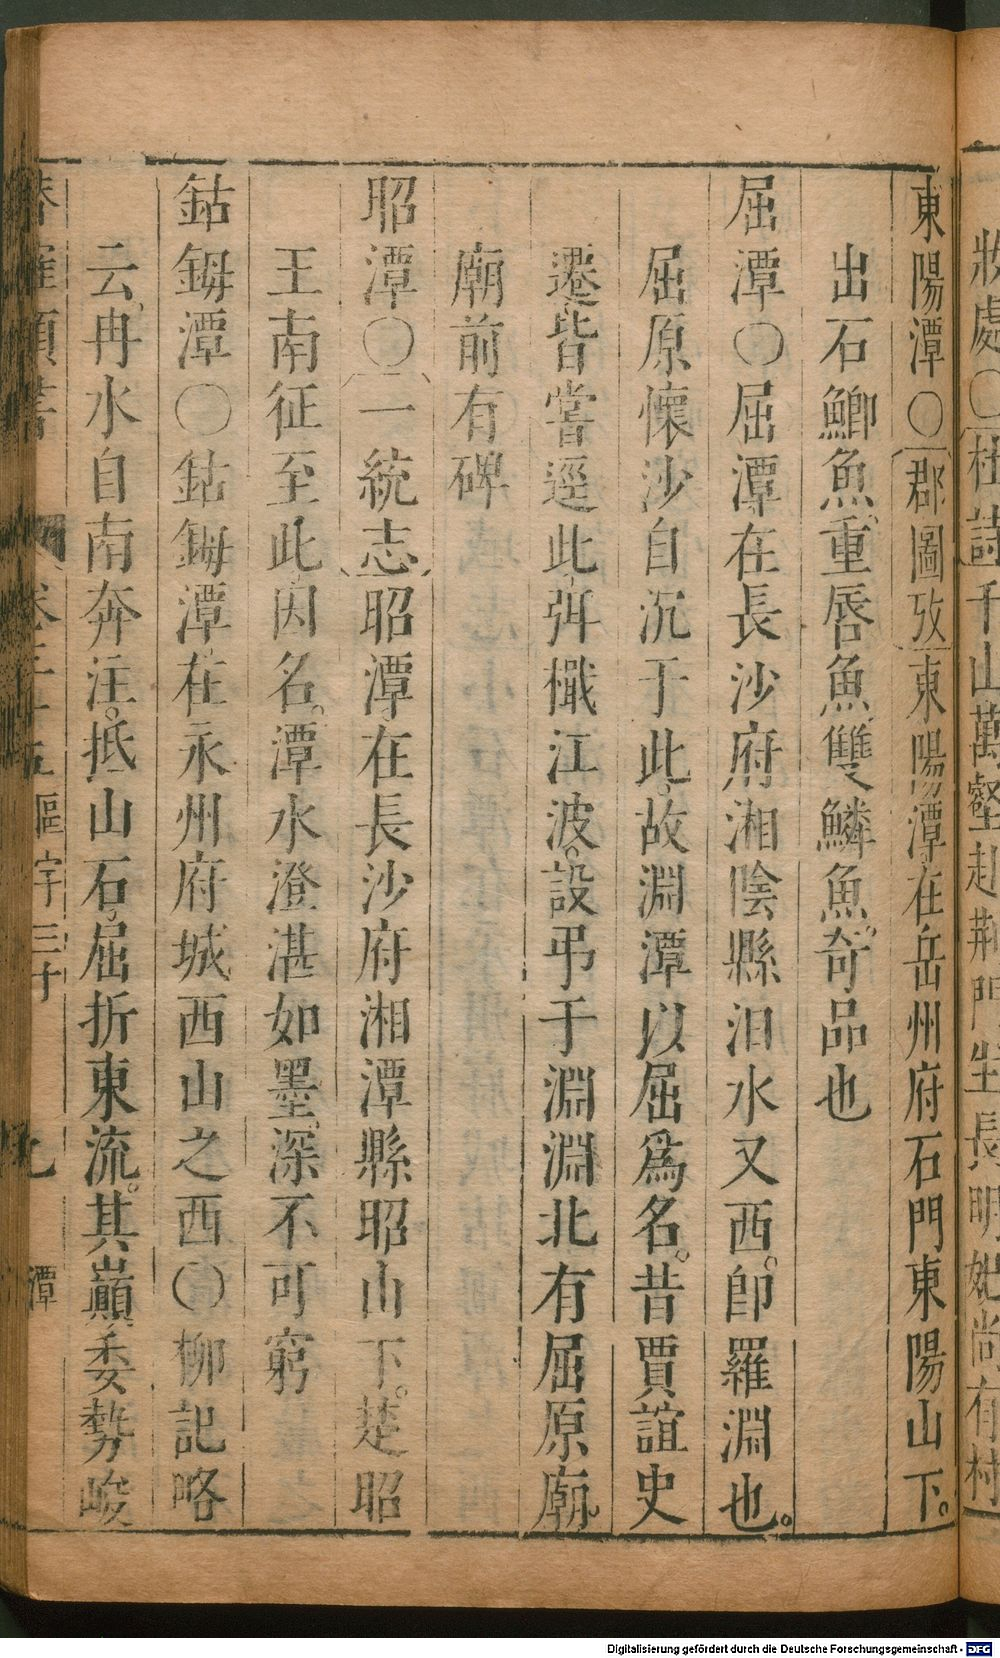 妝處○杜詩千山萬壑赴荆門生長明妃尚有村
東陽潭○郡圖攷東陽潭在岳州府石門東陽山下。
出石鯽魚。重唇魚、雙鱗魚。奇品也
屈潭○屈潭在長沙府湘陰縣汨水又西。即羅淵也。
屈原懷沙自沉于此。故淵潭以屈爲名。昔賈誼史
遷、皆嘗逕此、弭檝江波。設弔于淵淵北有屈原廟。
廟前有碑
昭潭○一統志昭潭在長沙府湘潭縣昭山下。楚昭
王南征至此、因名。潭水澄湛如墨。深不可窮
鈷鉧潭○鈷鉧潭。在永州府城西山之西○柳記略
云。冉水自南奔注。抵山石。屈折東流。其巔委勢峻
類書 卷三十五 區宇三十 九 潭
Digitalisierung gefördert durch die Deutsche Forschungsgemeinschaft - DFG